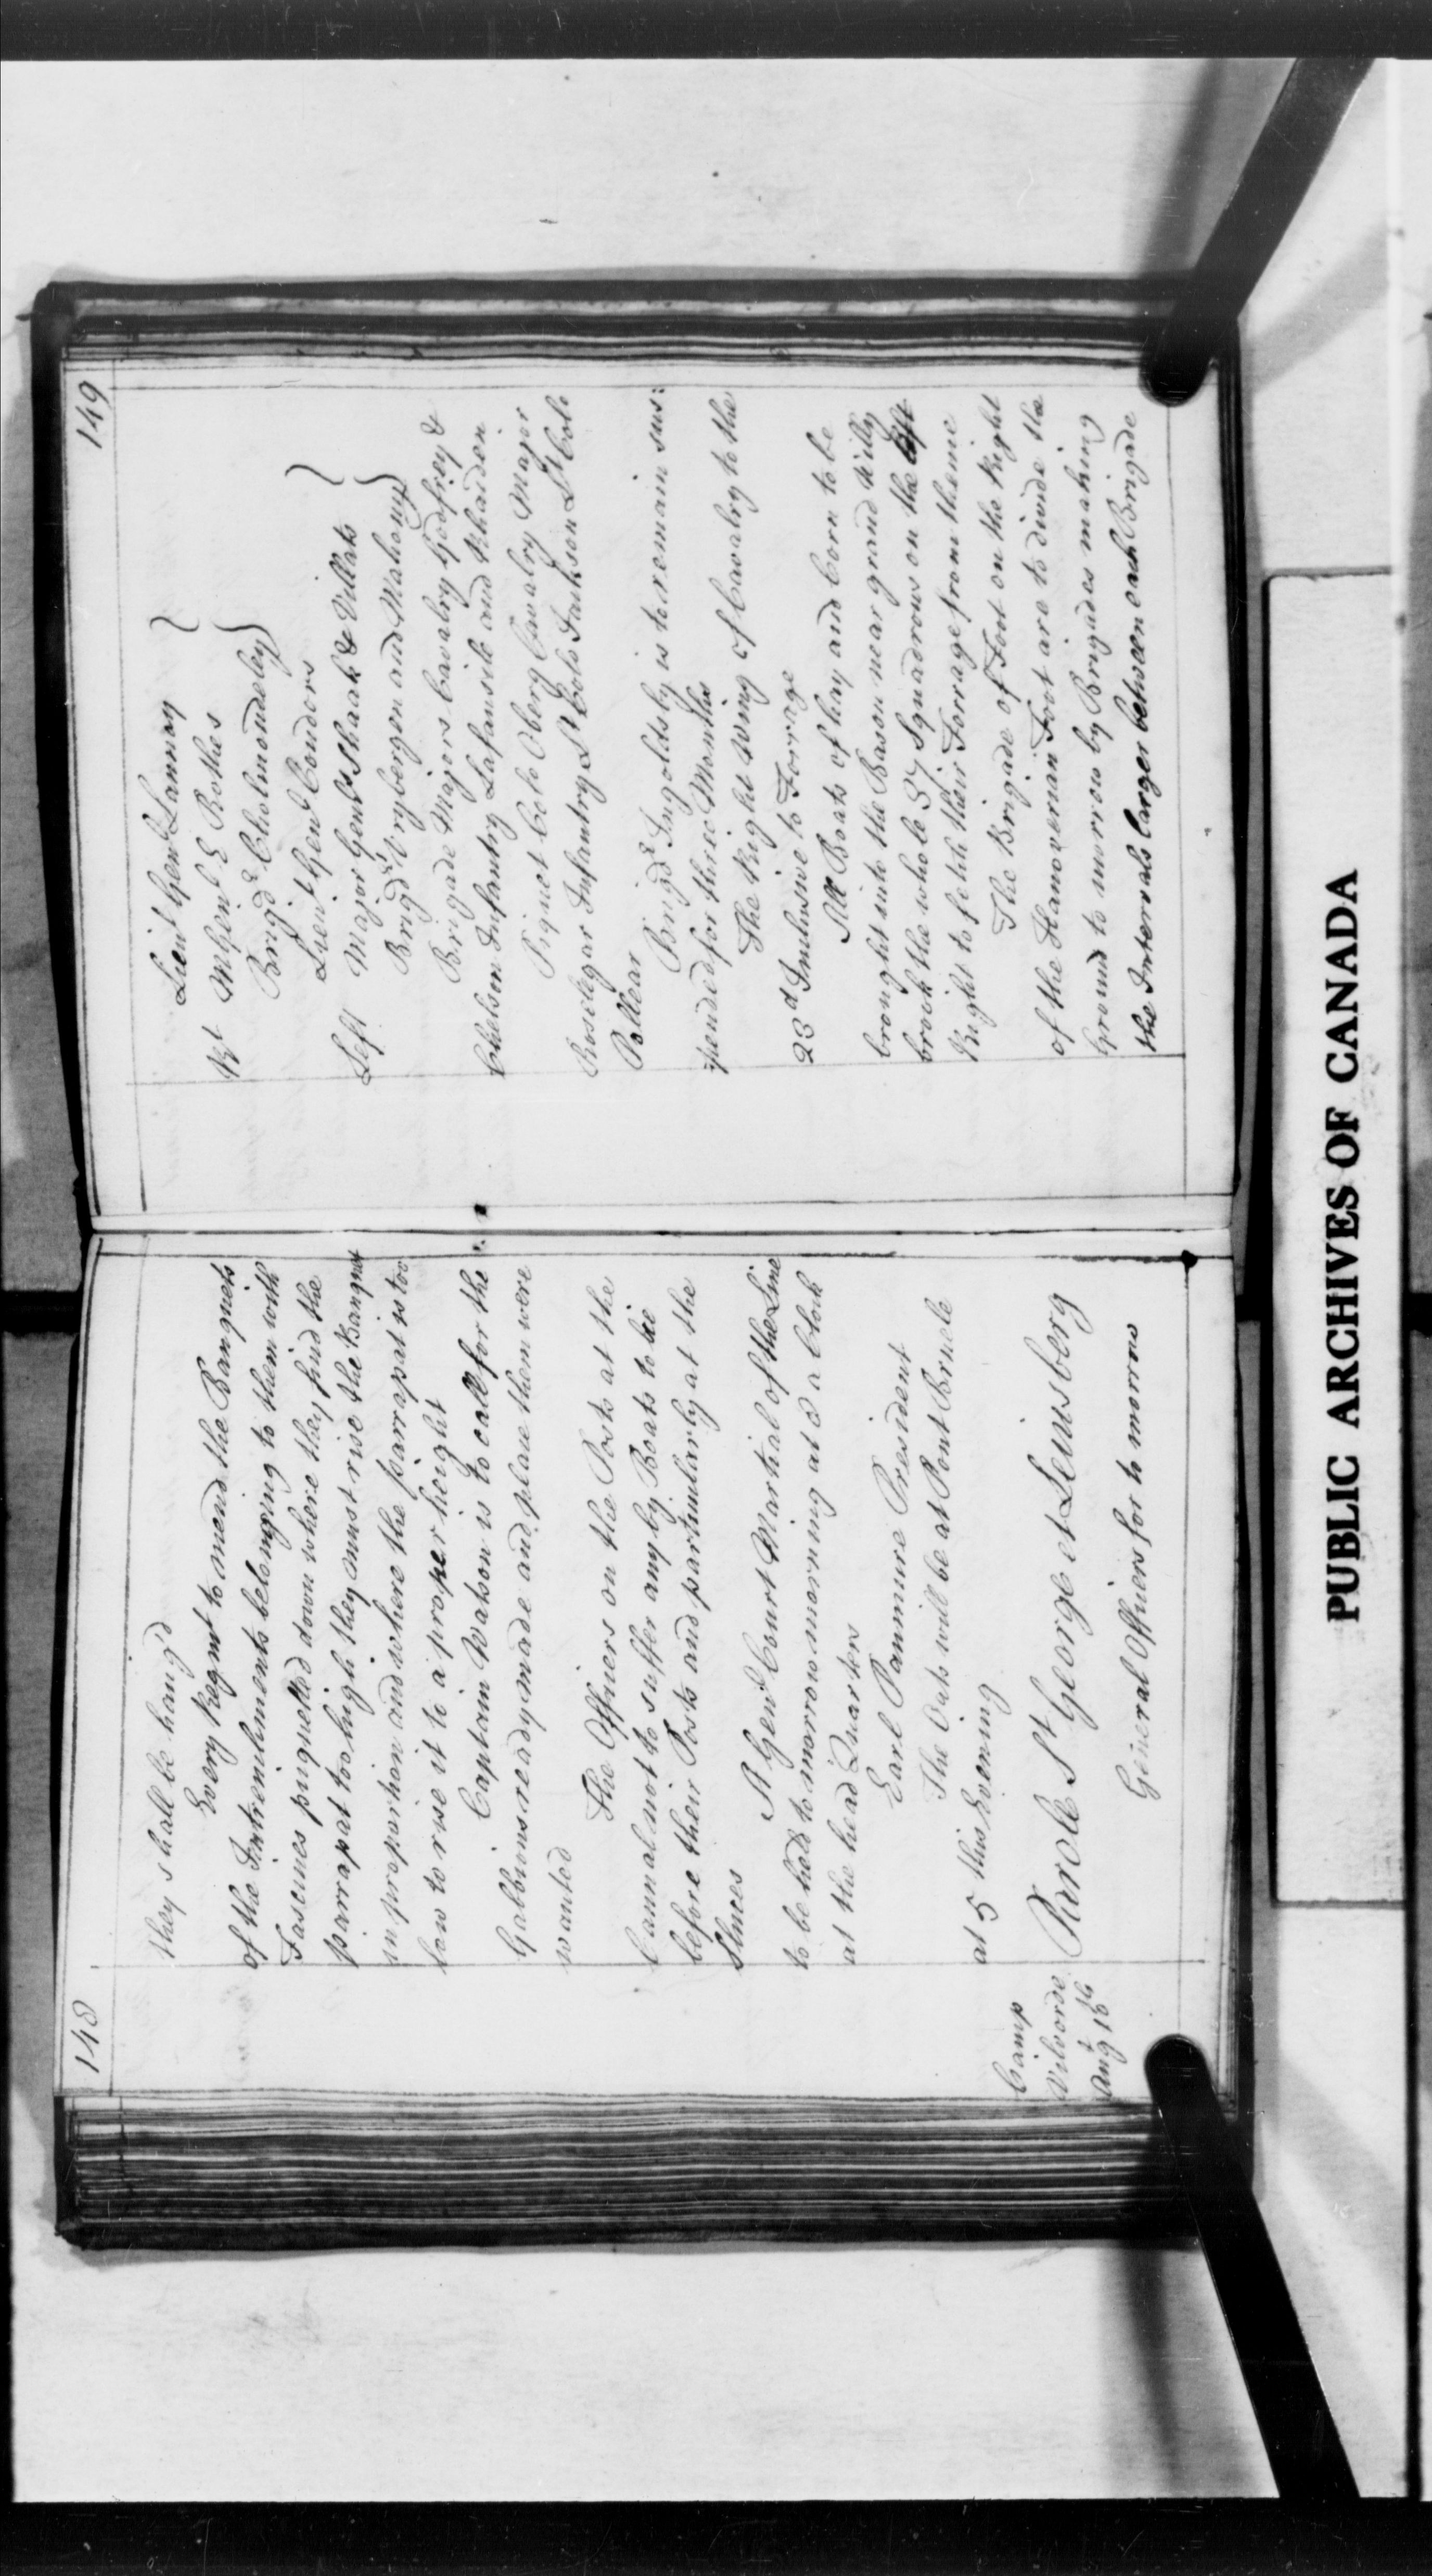 148
they shall be hang'd
Every Regmt to mend the Banquets
of the Intrenchments belonging to them with
Fascines picquetted down where they find the
parrapat too high they must rise the Banquet
in proportion and where the parrapat is too
low to rise it to a proper height
Captain Watson is to call for the
Gabbions ready made and place them were
wanted
The Officers on the Posts at the
Cannal not to suffer any by Boats to be
before their Posts and particularly at the
Sluces
A Genl Court Martial of the Line
to be held to morrow morning at 8 a Clock
at the head Quarters
Earl Panmure President
The Oats will be at Pont Brule
at 5 this Evening
Camp
Vilvorde
Augt 16th
Parole St George et Lewisberg
General Officers for to morrow
149
Lieut Genl Lannoy
Rt MGenl E Rothes
Brigd Cholmondeley
Lieut Genl Couders
Left Major Genls Shaak & Villats
Brigdrs Vrybergen and Mahony
Brigade Majors Cavalry Godfrey &
Chelson Infantry Lafausile and Khadden
Picquet Colo Oberg Cavalry Major
Rosclegar Infantry Lt Colo Jackson Lt Colo
Pollear
Brigd Ingoldsby is to remain sus:
:pended for three Months
The Right Wing of Cavalry to the
23d Inclusive to Forrage
All Boats of hay and Corn to be
brought into the Bason near grand Willy
brook the whole 37 Squadrons on the left
Right to fetch their Forrage from thence
The Brigade of Foot on the Right
of the Hanoverian Foot are to divide the
Ground to morrow by Brigades making
the Intervals larger between each Brigade
PUBLIC ARCHIVES OF CANADA